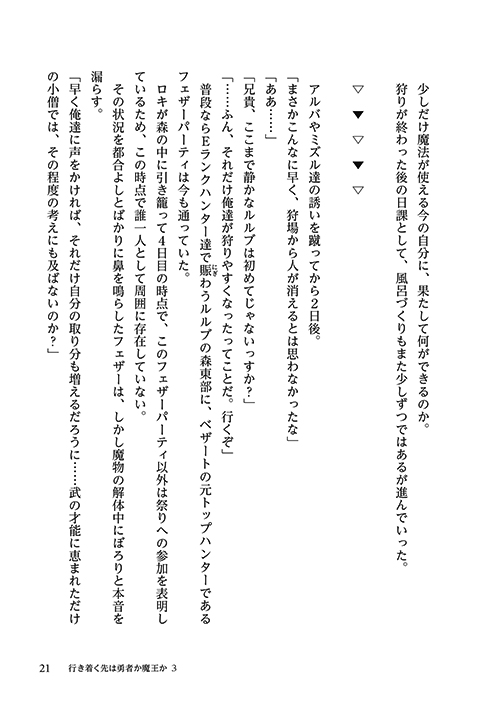 少しだけ魔法が使える今の自分に、果たして何ができるのか。
狩りが終わった後の日課として、風呂づくりもまた少しずつではあるが進んでいった。
▽　▼　▽　▼　▽
アルバやミズル達の誘いを蹴ってから２日後。
「まさかこんなに早く、狩場から人が消えるとは思わなかったな」
「ああ……」
「兄貴、ここまで静かなルルブは初めてじゃないっすか？」
「……ふん、それだけ俺達が狩りやすくなったってことだ。行くぞ」
普段ならＥランクハンター達で賑わうルルブの森東部に、ベザートの元トップハンターである
にぎ
フェザーパーティは今も通っていた。
ロキが森の中に引き籠って４日目の時点で、このフェザーパーティ以外は祭りへの参加を表明し
ているため、この時点で誰一人として周囲に存在していない。
その状況を都合よしとばかりに鼻を鳴らしたフェザーは、しかし魔物の解体中にぽろりと本音を
漏らす。
「早く俺達に声をかければ、それだけ自分の取り分も増えるだろうに……武の才能に恵まれただけ
の小僧では、その程度の考えにも及ばないのか？」
21　行き着く先は勇者か魔王か 3